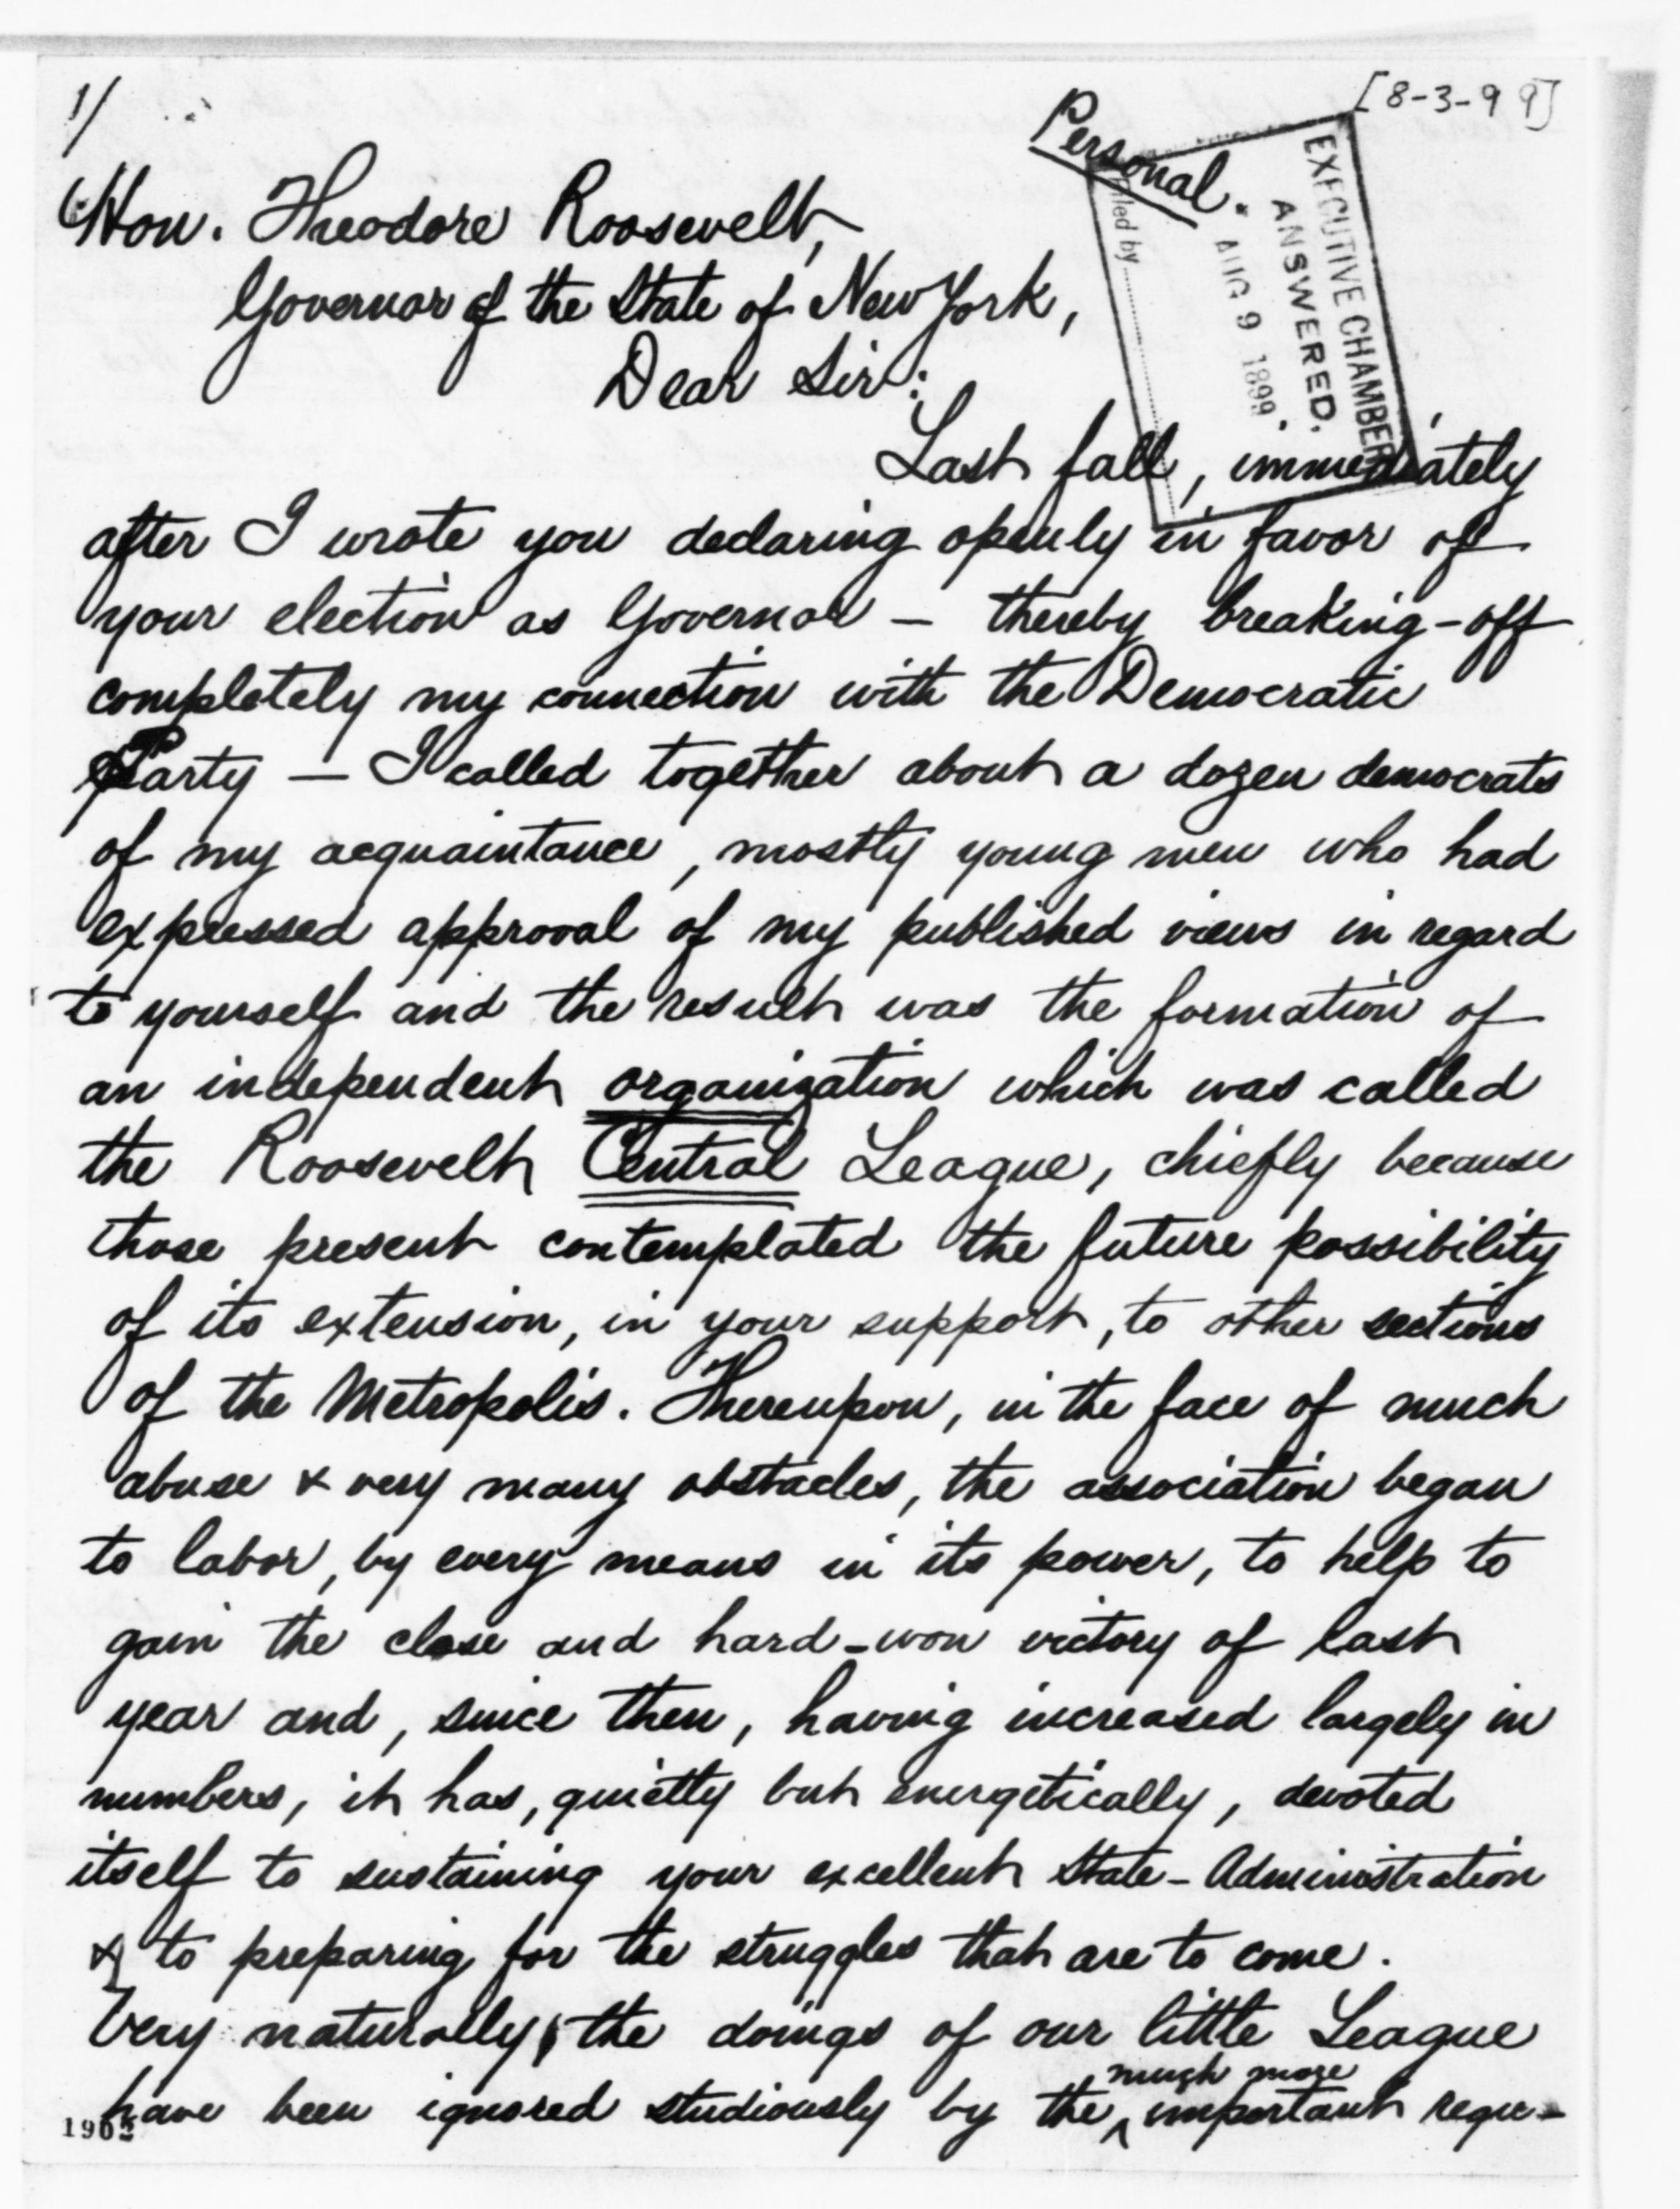 1/
[8-3-99]
Personal.
EXECUTIVE CHAMBER
ANSWERED.
AUG 9 1899
Filed by
Hon. Theodore Roosevelt,
Governor of the State of New York,
Dear Sir:
Last fall, immediately
after I wrote you declaring openly in favor of
your election as Governor — thereby breaking-off
completely my connection with the Democratic
Party — I called together about a dozen democrats
of my acquaintance, mostly young men who had
expressed approval of my published views in regard
to yourself and the result was the formation of
an independent organization which was called
the Roosevelt Central League, chiefly because
those present contemplated the future possibility
of its extension, in your support, to other sections
of the Metropolis. Thereupon, in the face of much
abuse & very many obstacles, the association began
to labor, by every means in its power, to help to
gain the close and hard-won victory of last
year and, since then, having increased largely in
numbers, it has, quietly but energetically, devoted
itself to sustaining your excellent State-Administration
& to preparing for the struggles that are to come.
Very naturally, the doings of our little League
much more
have been ignored studiously by the ^ important regu-
1962